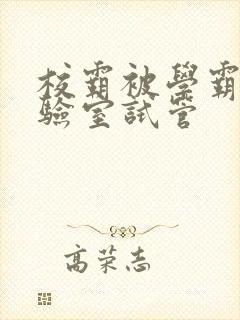 校霸被學霸
驗室試管
高荣志